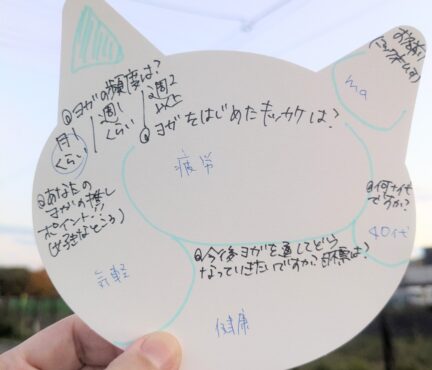 お名前
(ニックネーム可)
ma
Qヨガの頻度は?
月1
くらい
週1
くらい
週2
以上
Qヨガをはじめたキッカケは?
疲労
Q何十代
ですか?
40代
Qあなたの
ヨガの推し
ポイント…
(好きなところ)
気軽
Q今後ヨガを通してどう
なっていきたいですか?
健康